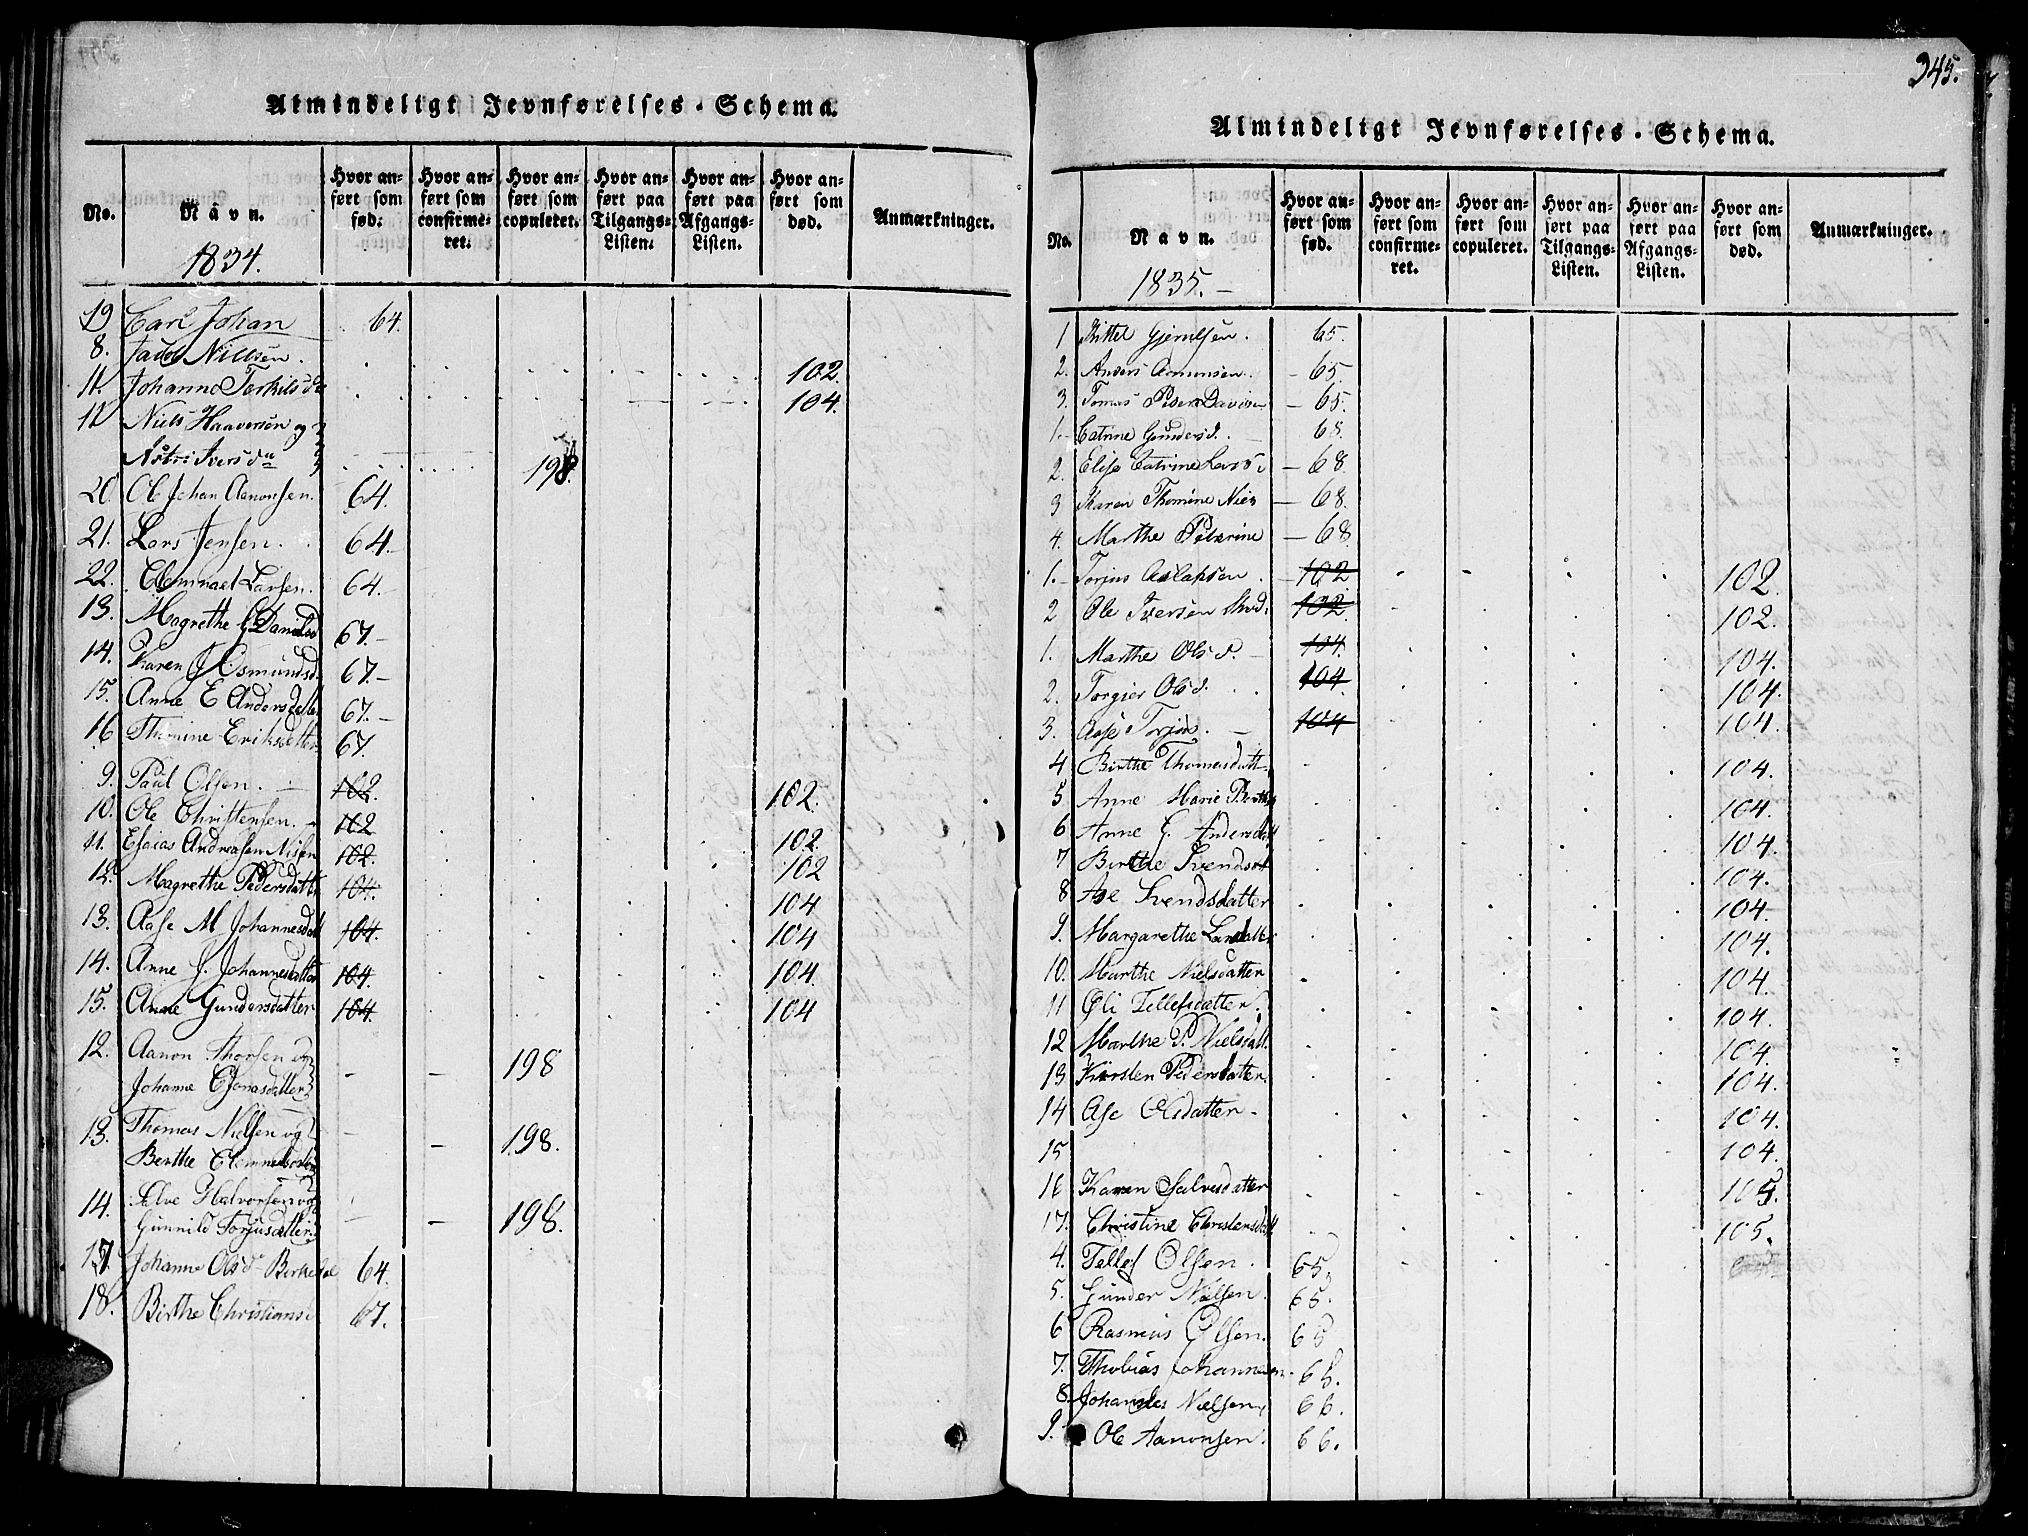 Almindeligt Jevnførelses-Schema.
No.
Navn.
Hvor anført som fød.
Hvor anført som confirmeret.
Hvor anført som copuleret.
Hvor anført paa Tilgangs-Listen.
Hvor anført paa Afgangs-Listen.
Hvor anført som død.
Anmærkninger.
1834.
19 Carl Johan 64.
8. Jacob Nielsen. 102.
11. Johanne Terkilsd 104.
11 Niels Haaversen og
Astri Iversda 198.
20. Ole Johan Aanonsen. 64.
21. Lars Jensen. 64.
22. Clemmet Larsen. 64.
13. Magrethe G Danielsd 67.
14. Karen J Osmundsd. 67.
15. Anne E Andersdatter 67.
16 Thomine Eriksdatter 67.
9. Paul Olsen. 102. 102.
10. Ole Christensen. 102 102.
11. Esaias Andreasen Nissen 102. 102
12. Magrethe Pedersdatter 104. 104
13. Aase M Johannesdatt 104. 104
14. Anne J. Johannesdatter 104. 104.
15. Anne Gundersdatter 104. 104
12. Aanon Thorsen og
Johanne Chonasdatter 198
13. Thomas Nielsen og
Berthe Clemmetsdatter 198.
14. Salve Halvorsen og
Gunnild Torjusdatter 198.
17. Johanne Olsd Birkedal 64.
18. Birthe Christiansd 67.
345.
Almindeligt Jevnførelses-Schema.
No.
Navn.
Hvor anført som fød.
Hvor anført som confirmeret.
Hvor anført som copuleret.
Hvor anført paa Tilgangs-Listen.
Hvor anført paa Afgangs-Listen.
Hvor anført som død.
Anmærkninger.
1835.
1 Kittel Gjerulsen. 65.
2. Anders Amunsen. 65.
3. Tomas Peder Davidsen 65.
1. Catrine Gundersd. 68.
2. Elise Catrine Larsd 68.
3 Karen Thomine Niels 68.
4. Marthe Peterine 68.
1. Torjus Aslaksen. 102 102.
2 Ole Iversen 102. 102.
1. Marthe Olsd. 104 104.
2. Torgier Olsd. 104 104.
3. Aase Torjus. 104 104.
4 Birthe Thomasdatt. 104.
5 Anne Marie 104.
6 Anne G. Andersdatt 104.
7 Birthe Svendsdt 104.
8 Ase Svendsdatter 104.
9. Margarethe Larsdatter 104.
10. Marthe Nielsdatter 104.
11 Øli Tellefsdatter. 104.
12 Marthe P. Nielsdatt. 104.
13 Kirsten Pedersdatter. 104.
14 Ase Olsdatter. 104.
15 104.
16 Karen Salvesdatter 105.
17. Christine Christensdatt 105.
4. Tellef Olsen. 65.
5. Gunder Nielsen. 65.
6 Rasmus Olsen. 65
7. Thobias Johannesen. 66.
8. Johannes Nielsen 66.
9. Ole Aanonsen. 66.